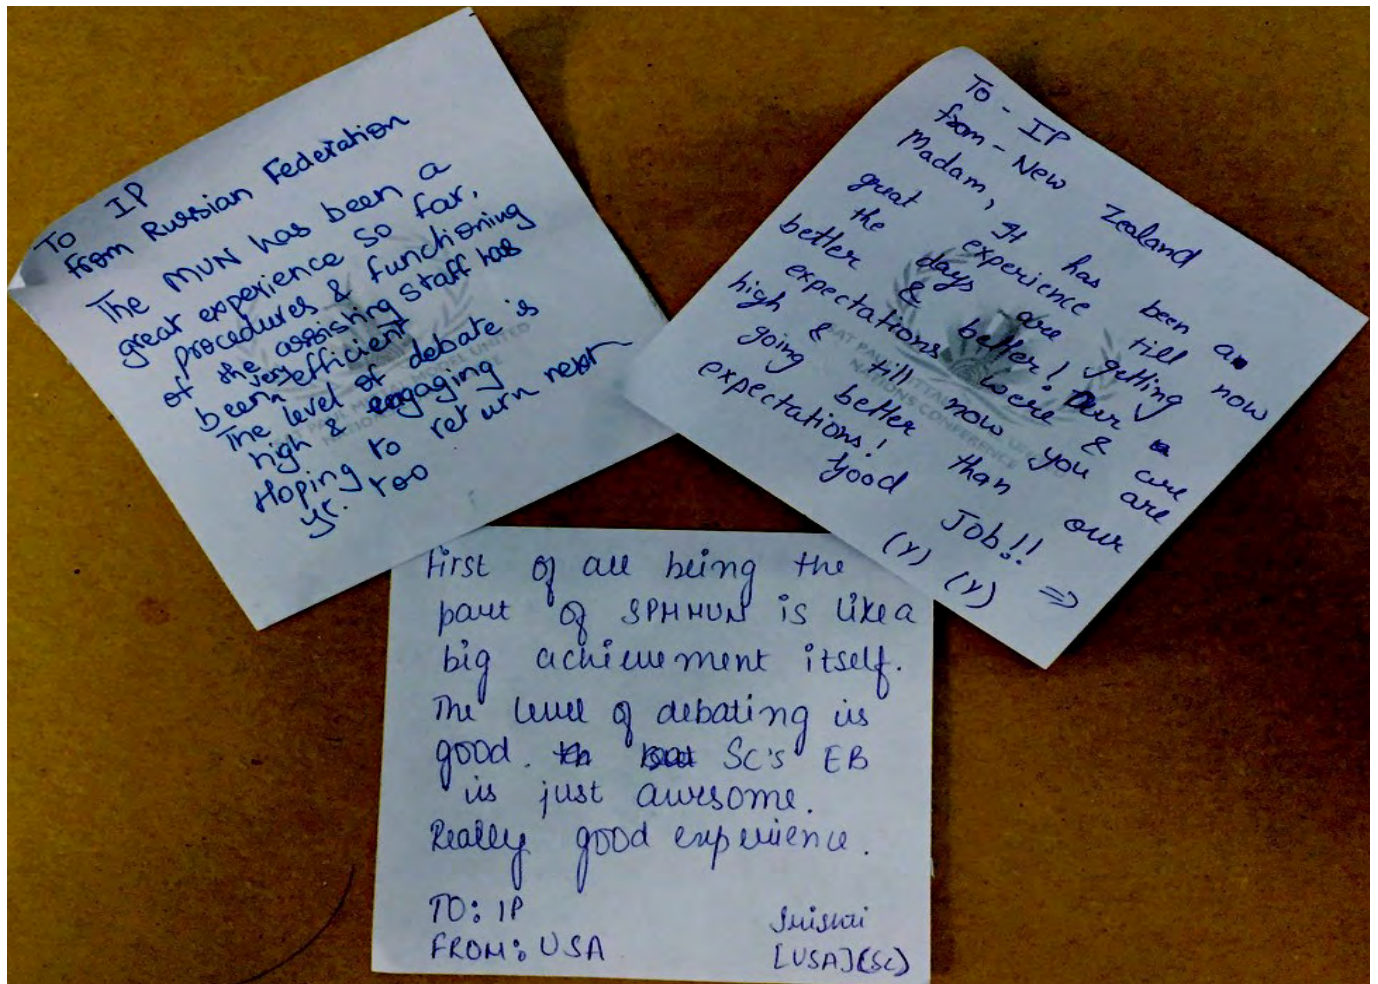 To IP
From Russian Federation
The MUN has been a
great experience so far,
procedures & functioning
of the assisting staff has
been very efficient
The level of debate is
high & engaging
Hoping to return next
yr. too
To - IP
from - New Zealand
Madam,
It has been a
great experience till now
the days are getting
better & better! Our
expectations were &
high & till now you are
going better than our
expectations!
Good Job!!
(Y) (Y) =>
First of all being the
part of SPMMUN is like a
big achievement itself.
The level of debating is
good. SC's EB
is just awesome.
Really good experience.
TO: IP
FROM: USA
[USA](SC)